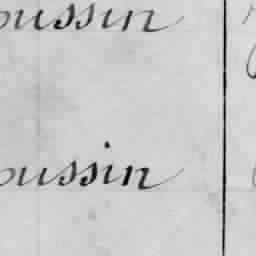 oussin
oussin